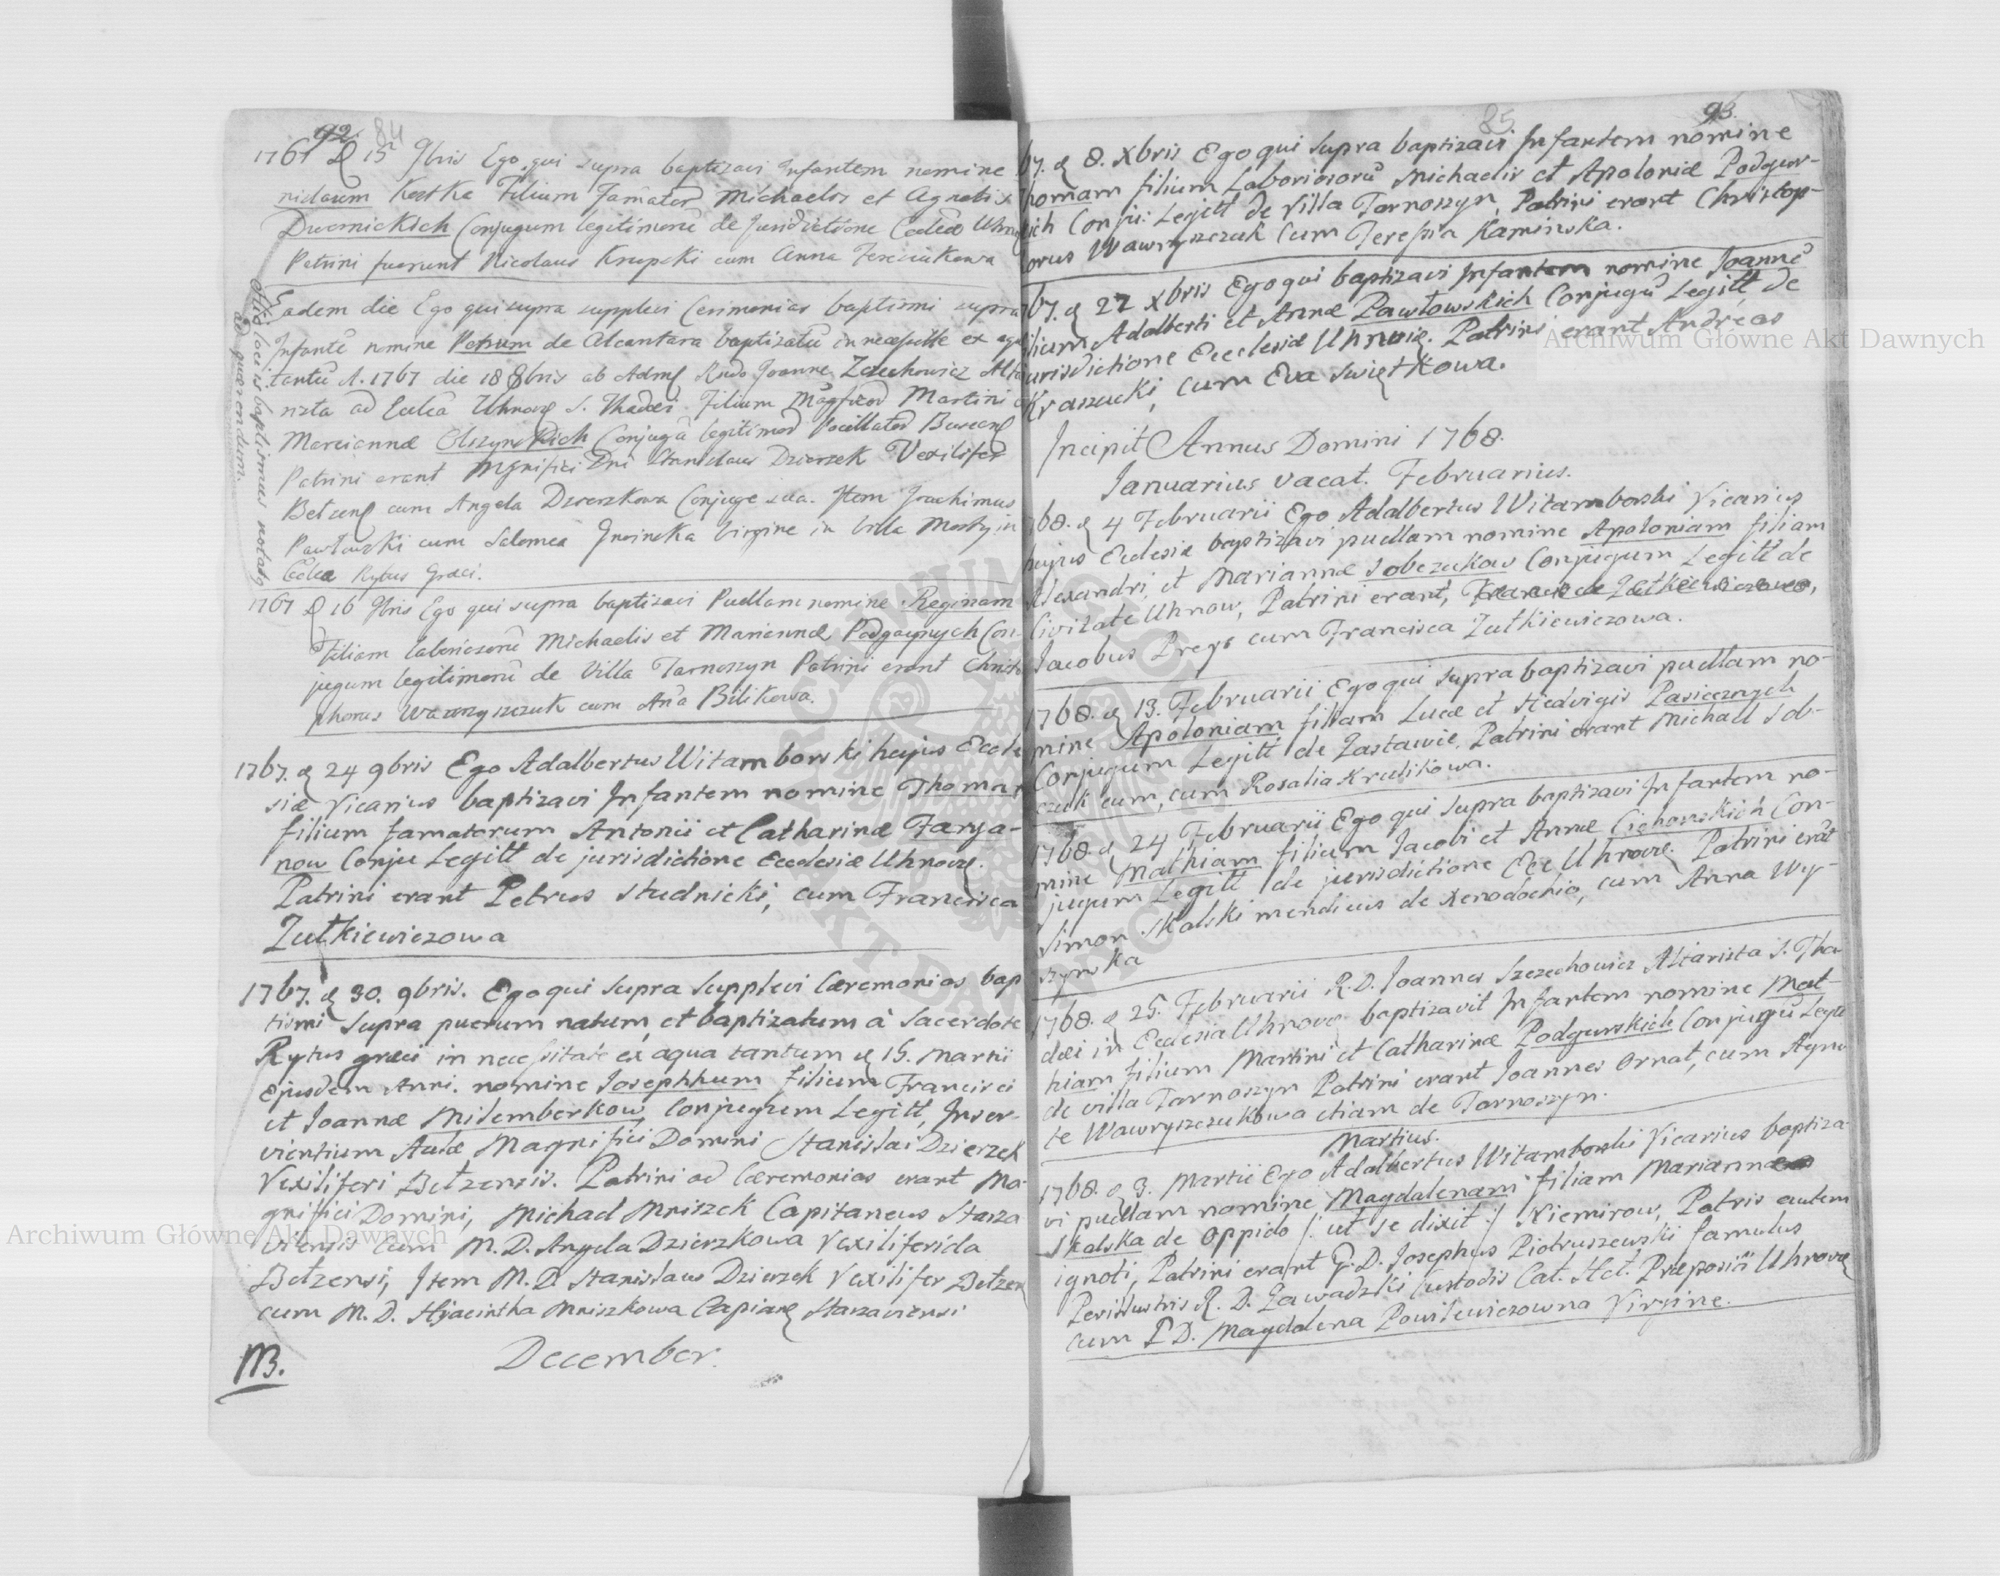 92. 84
1767 D 15 9bris Ego qui supra baptizavi Infantem nomine
Kostka Filium Famator Michaelis et Agnetis
Dwernickich Conjugum legitimorū de Jurisdictione Eccleae Uhnov
Patrini fuerunt Nicolaus Krupski cum Anna
Eadem die Ego qui supra supplevi Ceremonias baptismi supra
Infantē nomine Petrum de Alcantara baptizatū in necessitate ex aqua
tantū A. 1767 die 18 8bris ab Admd Rndo Joanne Zczechowicz Alta
rista ad Eccleā Uhnov S. Thadei Filium Magficor Martini
Mariannae Olszynskich Conjugū legitimor
Patrini erant Mgnifici Dni Stanislaus Dzierzek Vexilifer
Belzens cum Angela Dzierzkowa Conjuge sua. Item Joachimus
Pawłowski cum Salomea virgine in Villa Mosty in
Ecclea Rytus Graeci.
Alto loci is baptismus notatq
ad quaerendum.
1767 D 16 9bris Ego qui supra baptizavi Puellam nomine Reginam
Filiam laboriosorū Michaelis et Mariannae Podgornych Con-
jugum legitimorū de Villa Tarnoszyn Patrini erant Christo
phorus Wawryszczuk cum Aña Bilikowa.
1767. d 24 9bris Ego Adalbertus Witamborski hujus Eccle
siae Vicarius baptizavi Infantem nomine Thomam
filium famatorum Antonii et Catharinae Farja-
now Conju Legitt de jurisdictione Ecclesiae Uhnov.
Patrini erant Petrus Studnicki, cum Francisca
Zułkiewiczowa
1767. d 30. 9bris. Ego qui supra supplevi Caeremonias bap
tismi supra puerum natum, et baptizatum à Sacerdote
Rytus graeci in necessitate ex aqua tantum d 15. Martii
ejusdem Anni. nomine Josephhum filium Francisci
et Joannae Milemberkow, Conjugum Legitt, Inser-
vientium Aulae Magnifici Domini Stanislai Dzierzek
Vexiliferi Bełzensis. Patrini ad Caeremonias erant Ma-
gnifici Domini, Michael Mniszek Capitaneus Starza
viensis cum M. D. Angela Dzierzkowa Vexiliferida
Bełzensi, Item M. D. Stanislaus Dzierzek Vexilifer Bełzen
cum M. D. Hyacintha Mniszkowa Capianea Starzaviensi
NB. December.
85 93.
67. d 8. Xbris Ego qui supra baptizavi Infantem nomine
homam filium Laboriosorū Michaelis et Apoloniae Podgur-
ich Conju: Legitt de Villa Tarnoszyn, Patrini erant Christop-
orus Wawryszczuk cum Teressia Kaminska.
67. d 27 Xbris Ego qui baptizavi Infantem nomine Joannē
ilium Adalberti et Annae Pawłowskich Conjugū Legitt, de
urisdictione Ecclesiae Uhnoviae. Patrini erant Andreas
Kraszucki, cum Eva Swiętkowa.
Incipit Annus Domini 1768.
Januarius vacat. Februarius.
768. d 4 Februarii Ego Adalbertus Witamborski Vicarius
hujus Ecclesiae baptizavi puellam nomine Apoloniam filiam
Alexandri, et Mariannae Sobczukow Conjugum Legitt de
Civitate Uhnow, Patrini erant,
Jacobus Preys cum Francisca Zułkiewiczowa.
1768. d 13. Februarii Ego qui supra baptizavi puellam no-
mine Apoloniam filiam Lucae et Hedvigis Pasiecznych
Conjugum Legitt de Zastawie, Patrini erant Michael Sob-
czuk cum, cum Rosalia Krulikowa.
1768. d 24 Februarii Ego qui supra baptizavi Infantem no-
mine Mathiam filium Jacobi et Annae Cichowskich Con-
jugum Legitt de jurisdictione Ecc Uhnov. Patrini erāt
Simon Skalski mendicus de Xenodochio, cum Anna Wy-
szynska
1768. d 25. Februarii R. D. Joannes Szczechowicz Altarista S. Tha-
daei in Ecclesia Uhnov baptizavit Infantem nomine Mat-
hiam filium Martini et Catharinae Podgurskich Conjugū Legitt
de villa Tarnoszyn Patrini erant Joannes Ornat, cum Agne
te Wawryszczukowa etiam de Tarnoszyn.
Martius.
1768. d 3. Martii Ego Adalbertus Witamborski Vicarius baptiza-
vi puellam nomine Magdalenam filiam Mariannae
Skalska de Oppido /: ut se dixit :/ Niemirow, Patris autem
ignoti, Patrini erant G. D. Josephus Piotruszewski famulus
Perillustris R. D. Zawadzki Custodis Cat. Praepositi Uhnov
cum P D. Magdalena Powilewiczowna Virgine.
Archiwum Główne Akt Dawnych
Archiwum Główne Akt Dawnych
ARCHIWUM GŁÓWNE AKT DAWNYCH